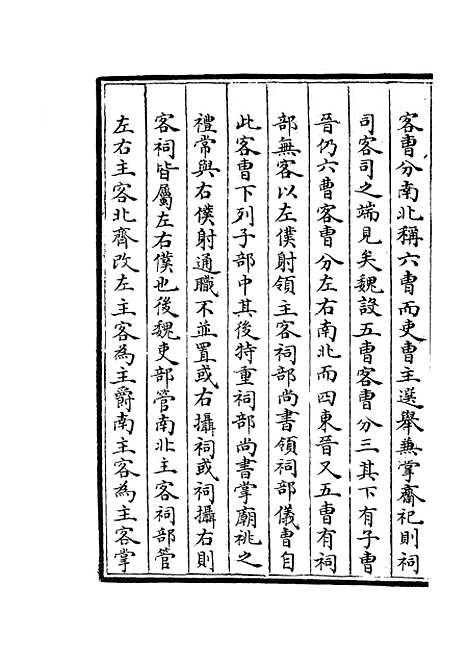 客曹分南北稱六曹而吏曹主選舉兼掌齋祀則祠
司客司之端見矣魏設五曹客曹分三其下有子曹
晉仍六曹客曹分左右南北而四東晉又五曹有祠
部無客以左僕射領主客祠部尚書領祠部儀曹自
此客曹下列子部中其後特重祠部尚書掌廟祧之
禮常與右僕射通職不並置或右攝祠或祠攝右則
客祠皆屬左右僕也後魏吏部管南北主客祠部管
左右主客北齊改左主客為主爵南主客為主客掌